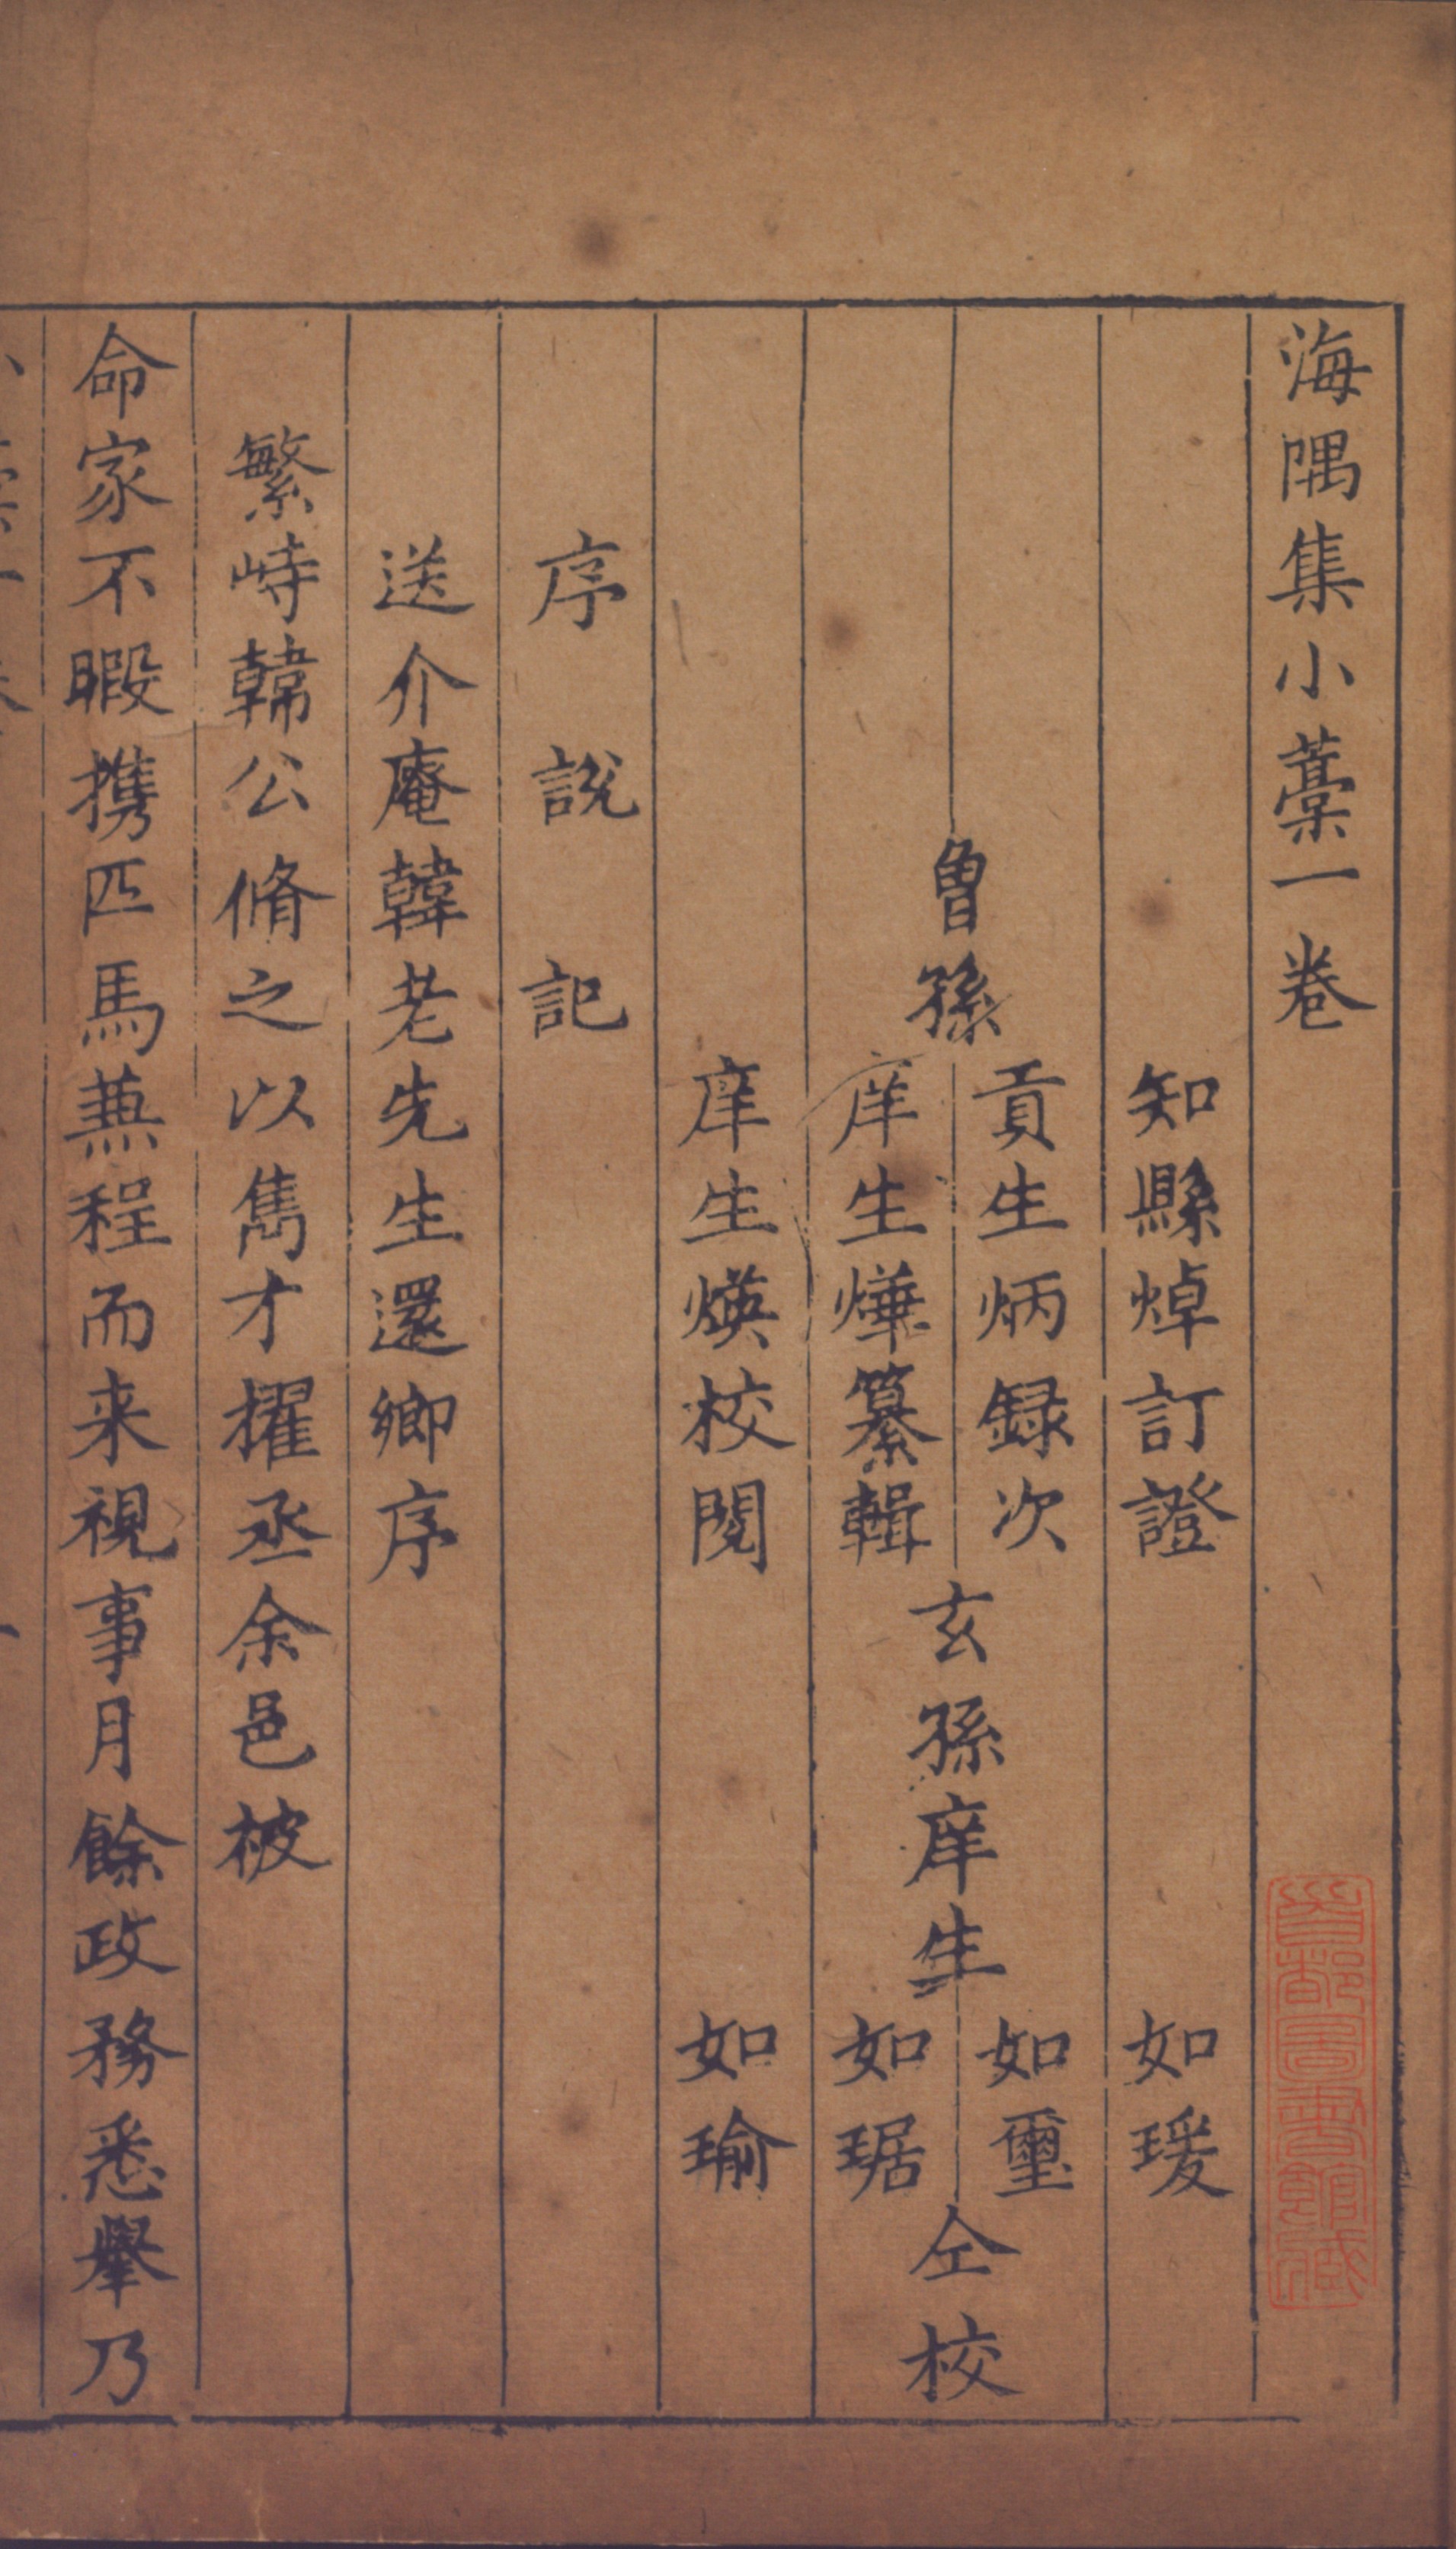 海隅集小藁一卷
知縣焯訂證　如瑗
曾孫　玄孫庠生　仝校
貢生炳録次　如璽
庠生燁纂輯　如琚
庠生煐校閱　如瑜
序　說　記
送介庵韓老先生還鄉序
繁峙韓公脩之以雋才擢丞余邑被
命家不暇携匹馬蒹程而来視事月餘政務悉舉乃
首都圖書館藏